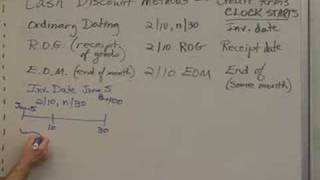 Cash Discount Methods Credit terms
CLOCK STARTS
Ordinary Dating 2/10, n/30 Inv. date
R.O.G. (receipt of goods) 2/10 ROG Receipt date
E.O.M. (end of month) 2/10 EOM End of (same month)
Inv. Date June 5
2/10, n/30
June 5
10 30